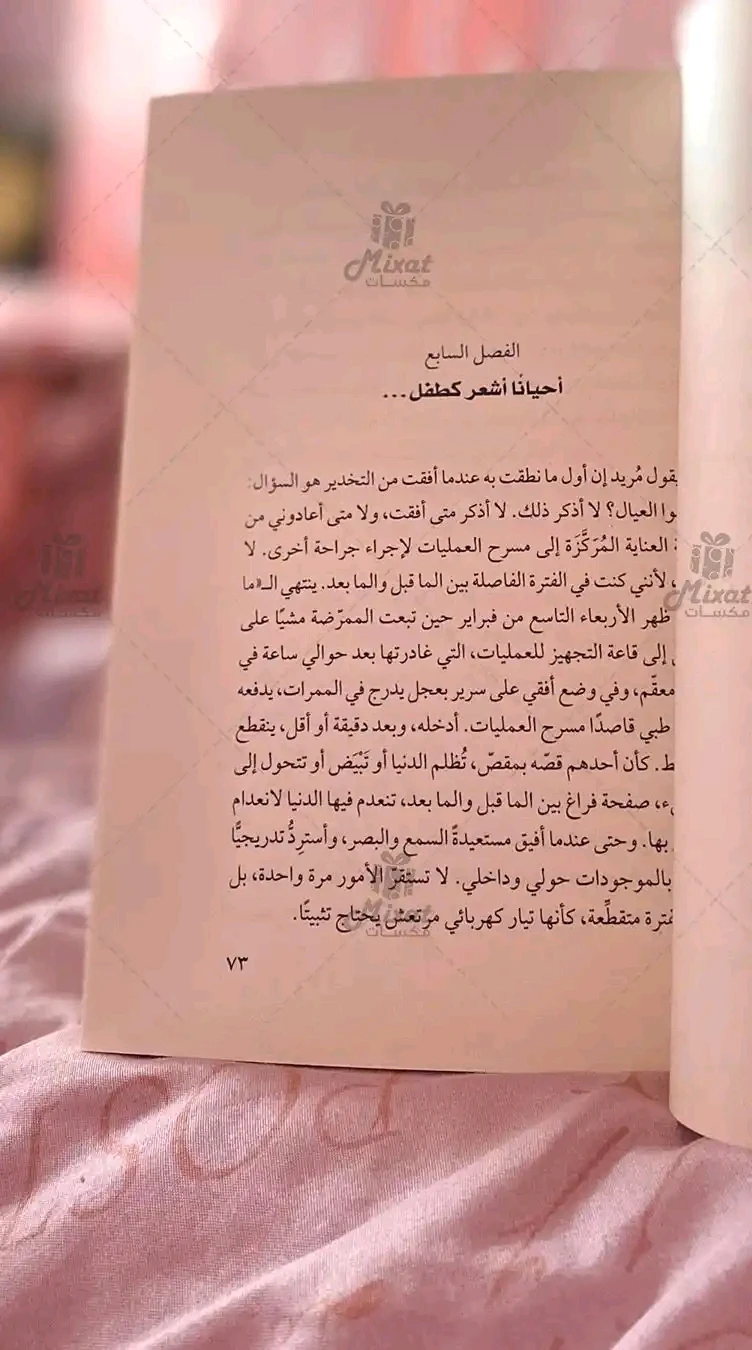 Mixat
مكسات
الفصل السابع
أحيانًا أشعر كطفل...
يقول مُريد إن أول ما نطقت به عندما أفقت من التخدير هو السؤال:
العيال؟ لا أذكر ذلك. لا أذكر متى أفقت، ولا متى أعادوني من
العناية المُرَكَّزَة إلى مسرح العمليات لإجراء جراحة أخرى. لا
، لأنني كنت في الفترة الفاصلة بين الما قبل والما بعد. ينتهي الـ«ما
ظهر الأربعاء التاسع من فبراير حين تبعت الممرّضة مشيًا على
إلى قاعة التجهيز للعمليات، التي غادرتها بعد حوالي ساعة في
معقّم، وفي وضع أفقي على سرير بعجل يدرج في الممرات، يدفعه
طبي قاصدًا مسرح العمليات. أدخله، وبعد دقيقة أو أقل، ينقطع
. كأن أحدهم قصّه بمقصّ، تُظلم الدنيا أو تَبْيَض أو تتحول إلى
، صفحة فراغ بين الما قبل والما بعد، تنعدم فيها الدنيا لانعدام
بها. وحتى عندما أفيق مستعيدةً السمع والبصر، وأستردُّ تدريجيًّا
بالموجودات حولي وداخلي. لا تستقرّ الأمور مرة واحدة، بل
متقطِّعة، كأنها تيار كهربائي مرتعش يحتاج تثبيتًا.
٧٣
Mixat
مكسات
Mixat
مكسات
Mixat
مكسات